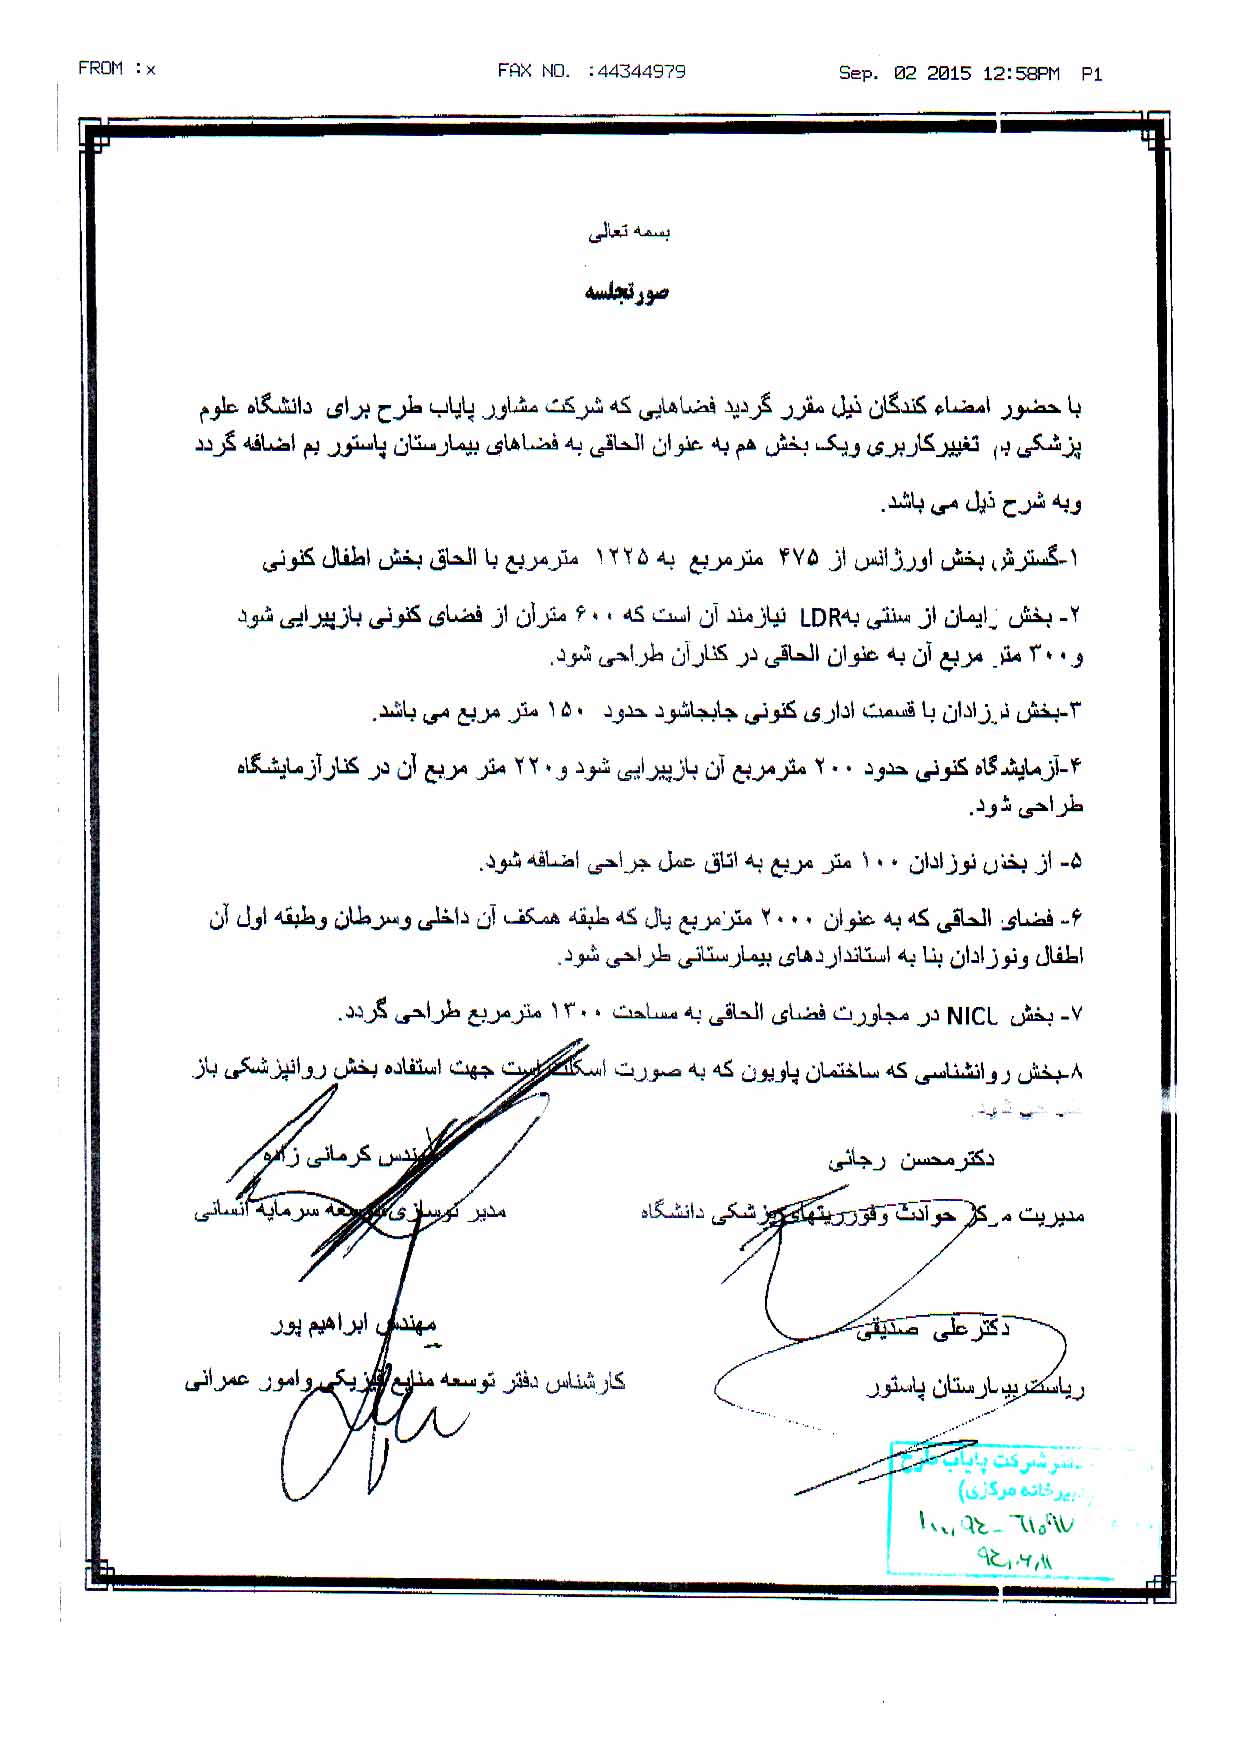 FROM : x FAX NO. : 44344979 Sep. 02 2015 12:58PM P1
بسمه تعالی
صورتجلسه
با حضور امضاء کندگان ذیل مقرر گردید فضاهایی که شرکت مشاور پایاب طرح برای دانشگاه علوم
پزشکی بم تغییرکاربری ویک بخش هم به عنوان الحاقی به فضاهای بیمارستان پاستور بم اضافه گردد
وبه شرح ذیل می باشد.
۱-گسترش بخش اورژانس از ۴۷۵ مترمربع به ۱۲۲۵ مترمربع با الحاق بخش اطفال کنونی
۲- بخش زایمان از سنتی به LDR نیازمند آن است که ۶۰۰ مترآن از فضای کنونی بازپیرایی شود
و۳۰۰ متر مربع آن به عنوان الحاقی در کنارآن طراحی شود.
۳-بخش نوزادان با قسمت اداری کنونی جابجاشود حدود ۱۵۰ متر مربع می باشد.
۴-آزمایشگاه کنونی حدود ۲۰۰ مترمربع آن بازپیرایی شود و۲۲۰ متر مربع آن در کنارآزمایشگاه
طراحی شود.
۵- از بخش نوزادان ۱۰۰ متر مربع به اتاق عمل جراحی اضافه شود.
۶- فضای الحاقی که به عنوان ۲۰۰۰ مترمربع یال که طبقه همکف آن داخلی وسرطان وطبقه اول آن
اطفال ونوزادان بنا به استانداردهای بیمارستانی طراحی شود.
۷- بخش NICL در مجاورت فضای الحاقی به مساحت ۱۳۰۰ مترمربع طراحی گردد.
۸-بخش روانشناسی که ساختمان پاویون که به صورت اسکلت است جهت استفاده بخش روانپزشکی باز
شود.
دکترمحسن رجائی مهندس کرمانی زاده
مدیریت مرکز حوادث وفوریتهای پزشکی دانشگاه مدیر نوسازی وتوسعه سرمایه انسانی
دکترعلی صدیقی مهندس ابراهیم پور
ریاست بیمارستان پاستور کارشناس دفتر توسعه منابع فیزیکی وامور عمرانی
شرکت پایاب طرح
(دبیرخانه مرکزی)